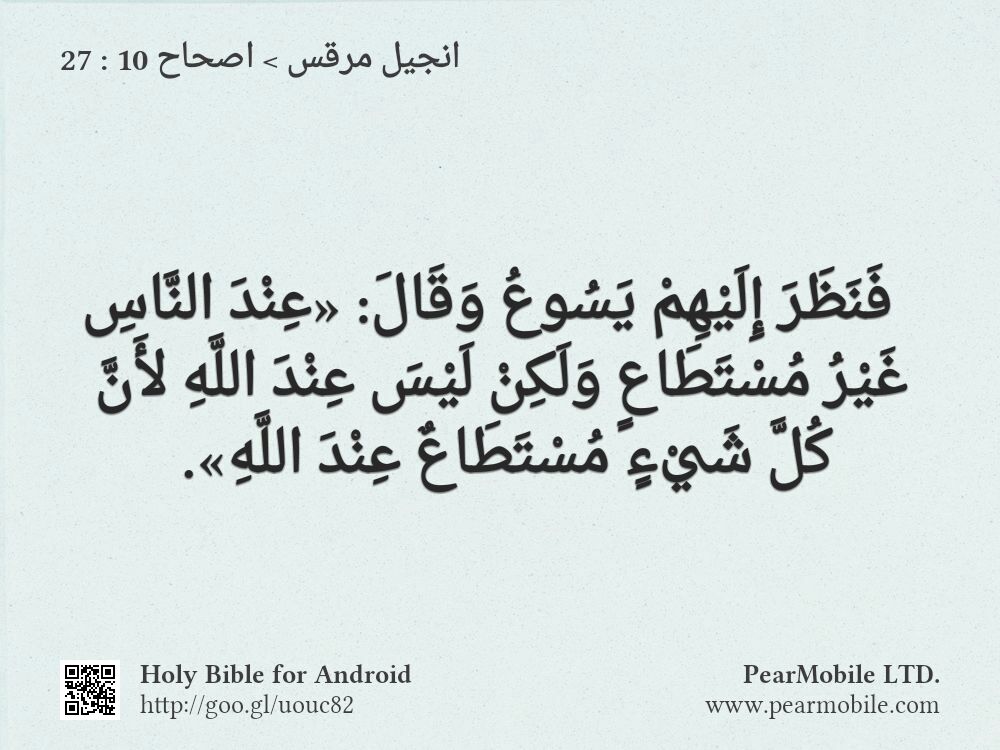 انجيل مرقس > اصحاح 10 : 27
فَنَظَرَ إِلَيْهِمْ يَسُوعُ وَقَالَ: «عِنْدَ النَّاسِ
غَيْرُ مُسْتَطَاعٍ وَلَكِنْ لَيْسَ عِنْدَ اللَّهِ لأَنَّ
كُلَّ شَيْءٍ مُسْتَطَاعٌ عِنْدَ اللَّهِ».
Holy Bible for Android
http://goo.gl/uouc82
PearMobile LTD.
www.pearmobile.com